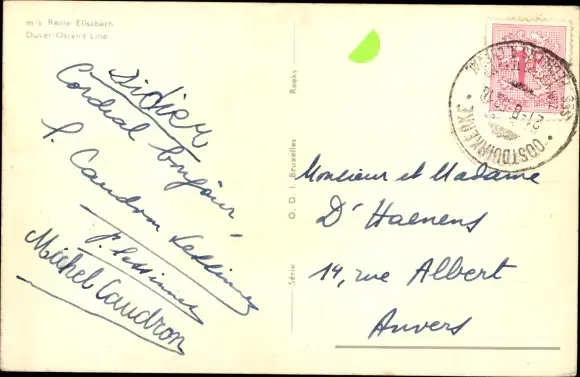 m/s Reine Elisabeth
Dover-Ostend Line
Didier
Cordial bonjour,
P. Caudron
Michel Caudron
Série O. D. I. Bruxelles Reeks
1
OOSTDUINKERKE
21-8
Monsieur et Madame
D'Haenens
14, rue Albert
Anvers